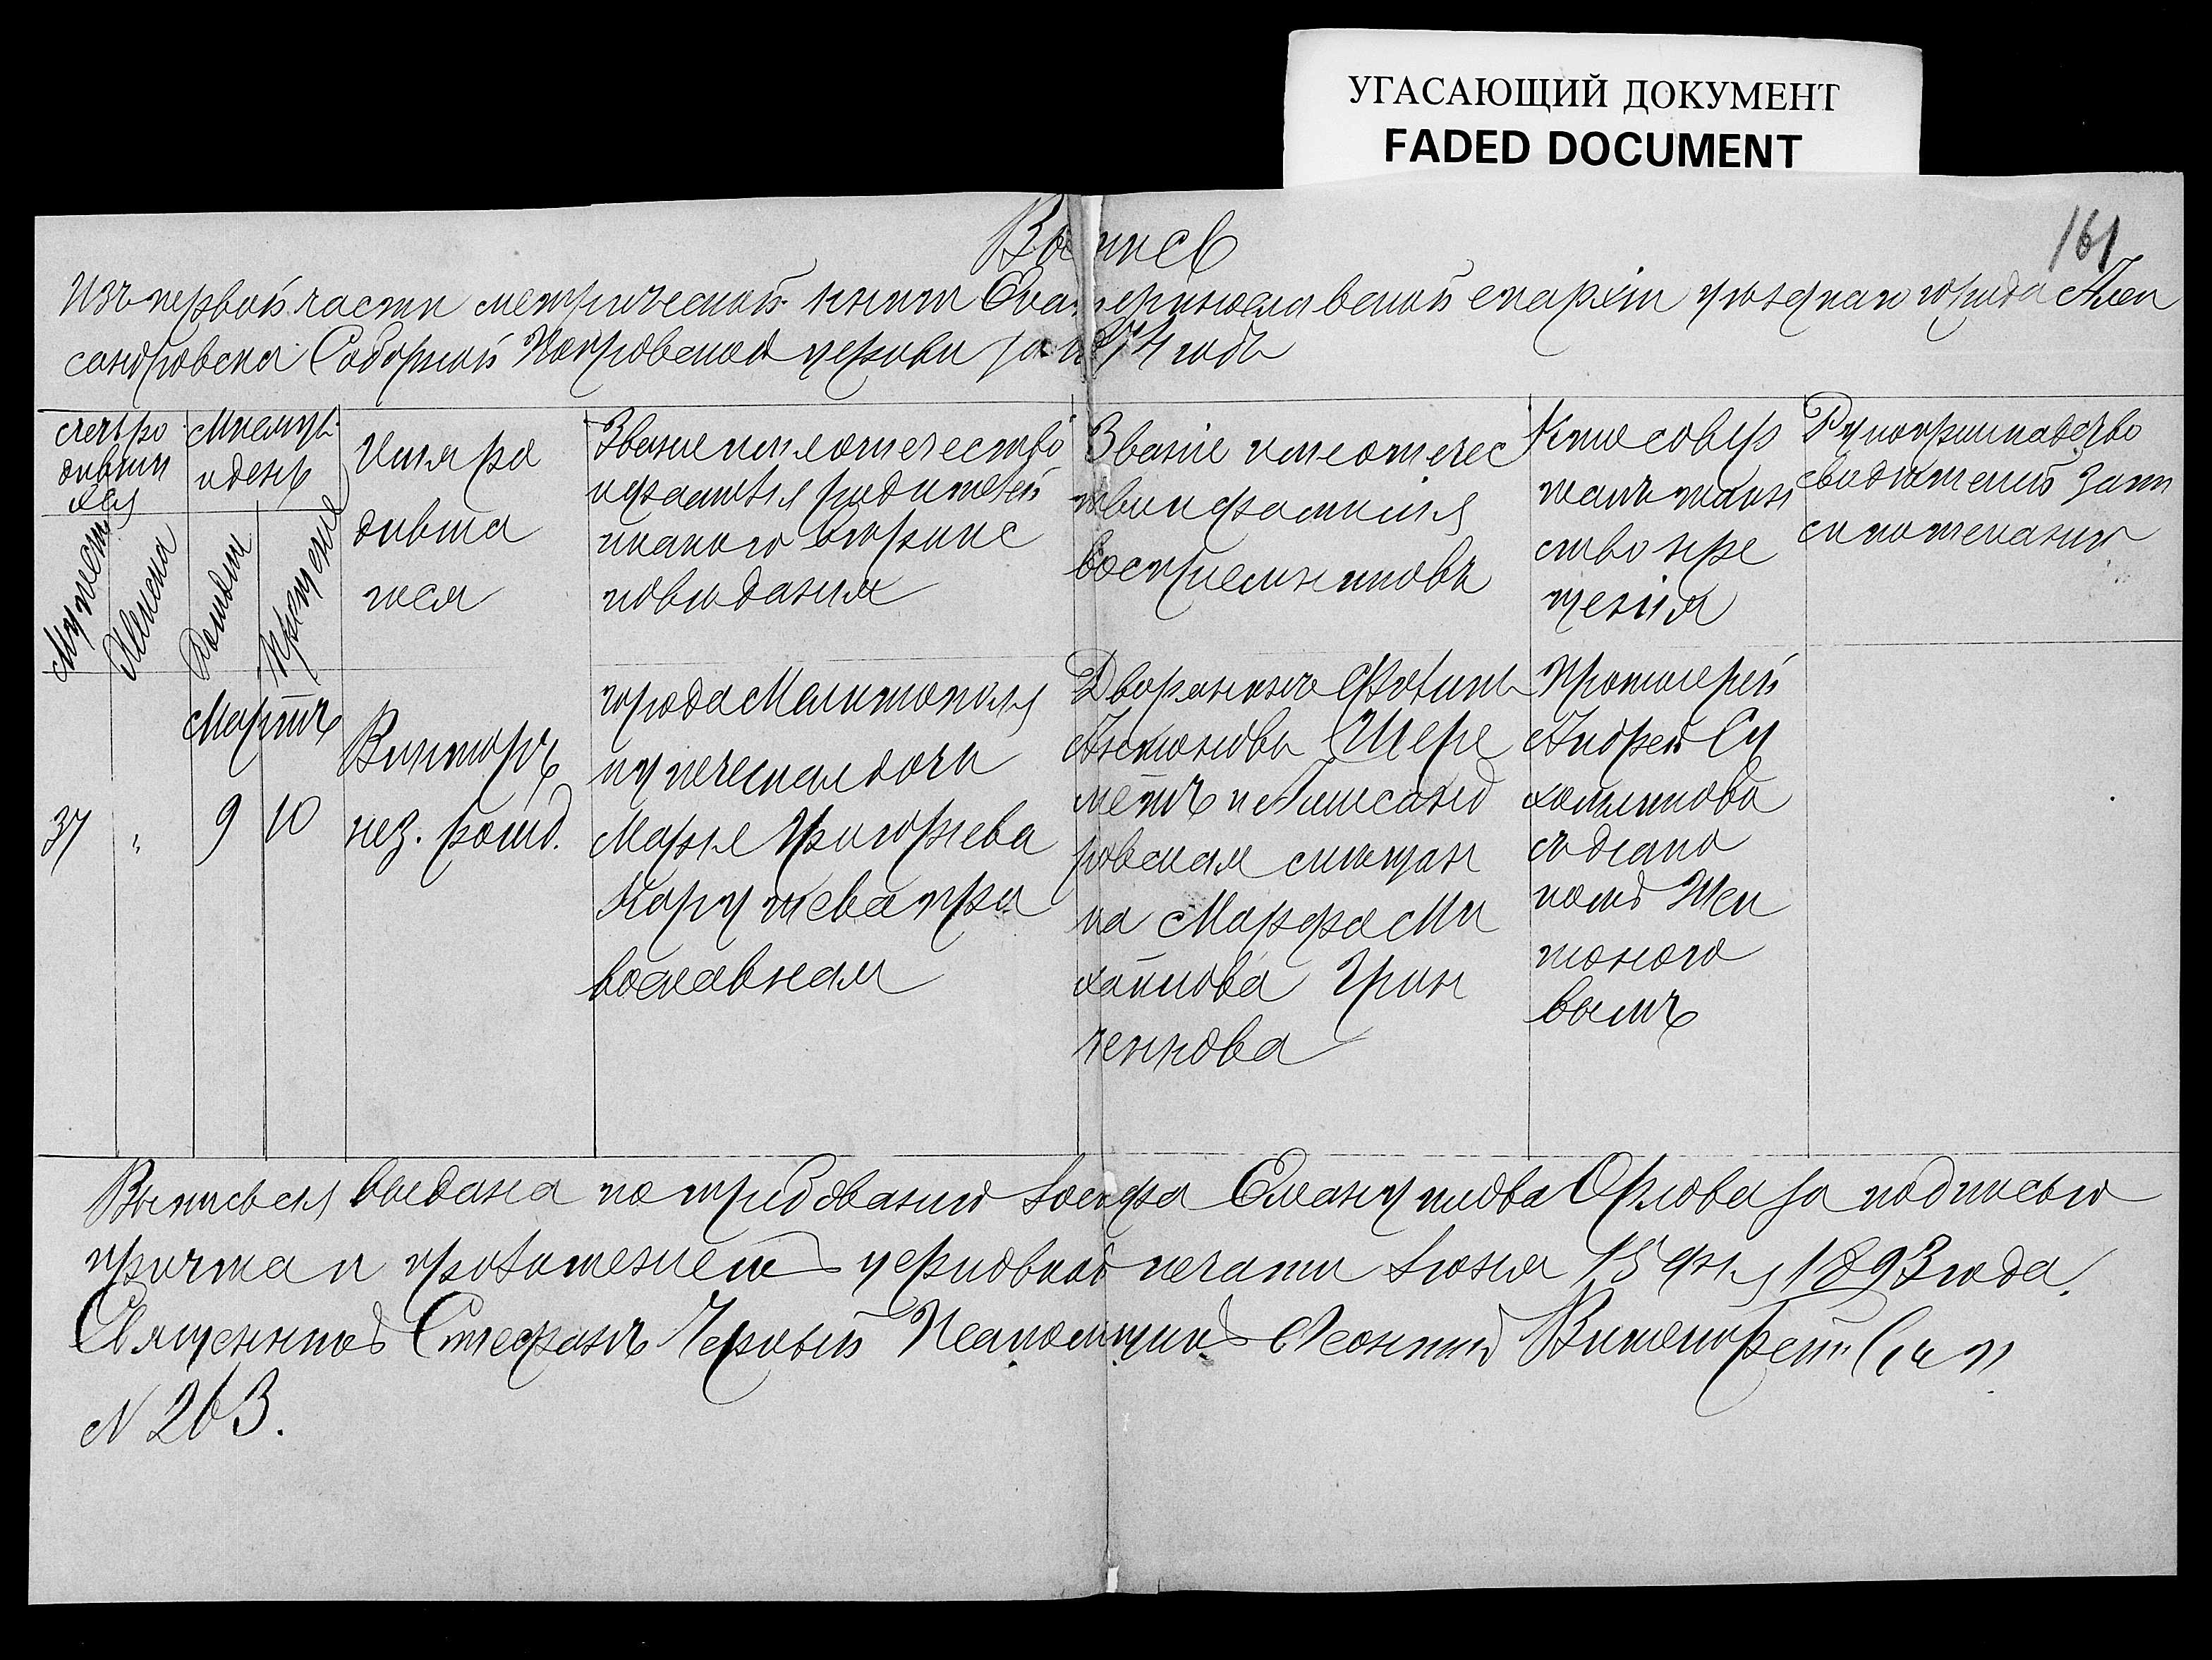 УГАСАЮЩИЙ ДОКУМЕНТ
FADED DOCUMENT
161
Выпись
Изъ первой части метрической книги Екатеринославской епархіи уезднаго города Алек
сандровска Соборной Покровской церкви за 1874 годъ
Счетъ ро
дившихся
Мужеска
Женска
Месяцъ
и день
Рожденія
Крещенія
Имя ро
дивша
гося
Званіе имя отчество
и фамилія родителей
и какого вероиспо
ведания
Званіе имя отчес
тво и фамилія
воспріемниковъ
Кто совер
шалъ таин
ство кре
щенія
Рукоприкладство
свидетелей запи
си по желанию
Мартъ
37
"
9
10
Викторъ
нез. рожд.
города Мелитополя
купеческая дочь
Марья Григорьева
православная
Дворянинъ Фотий
Антоновъ Шере
метъ и Александ
ровская мещан
ка Марфа Ми
хайлова Грин
ченкова
Протоіерей
Андрей Су
съ діако
номъ
вымъ
Выпись сія выдана по требованию Іосифа Емануилова Орлова за подписью
причта и приложениемъ церковной печати Іюня 15 дня 1893 года.
Священникъ Стефанъ Псаломщикъ Леонтий
N 263.